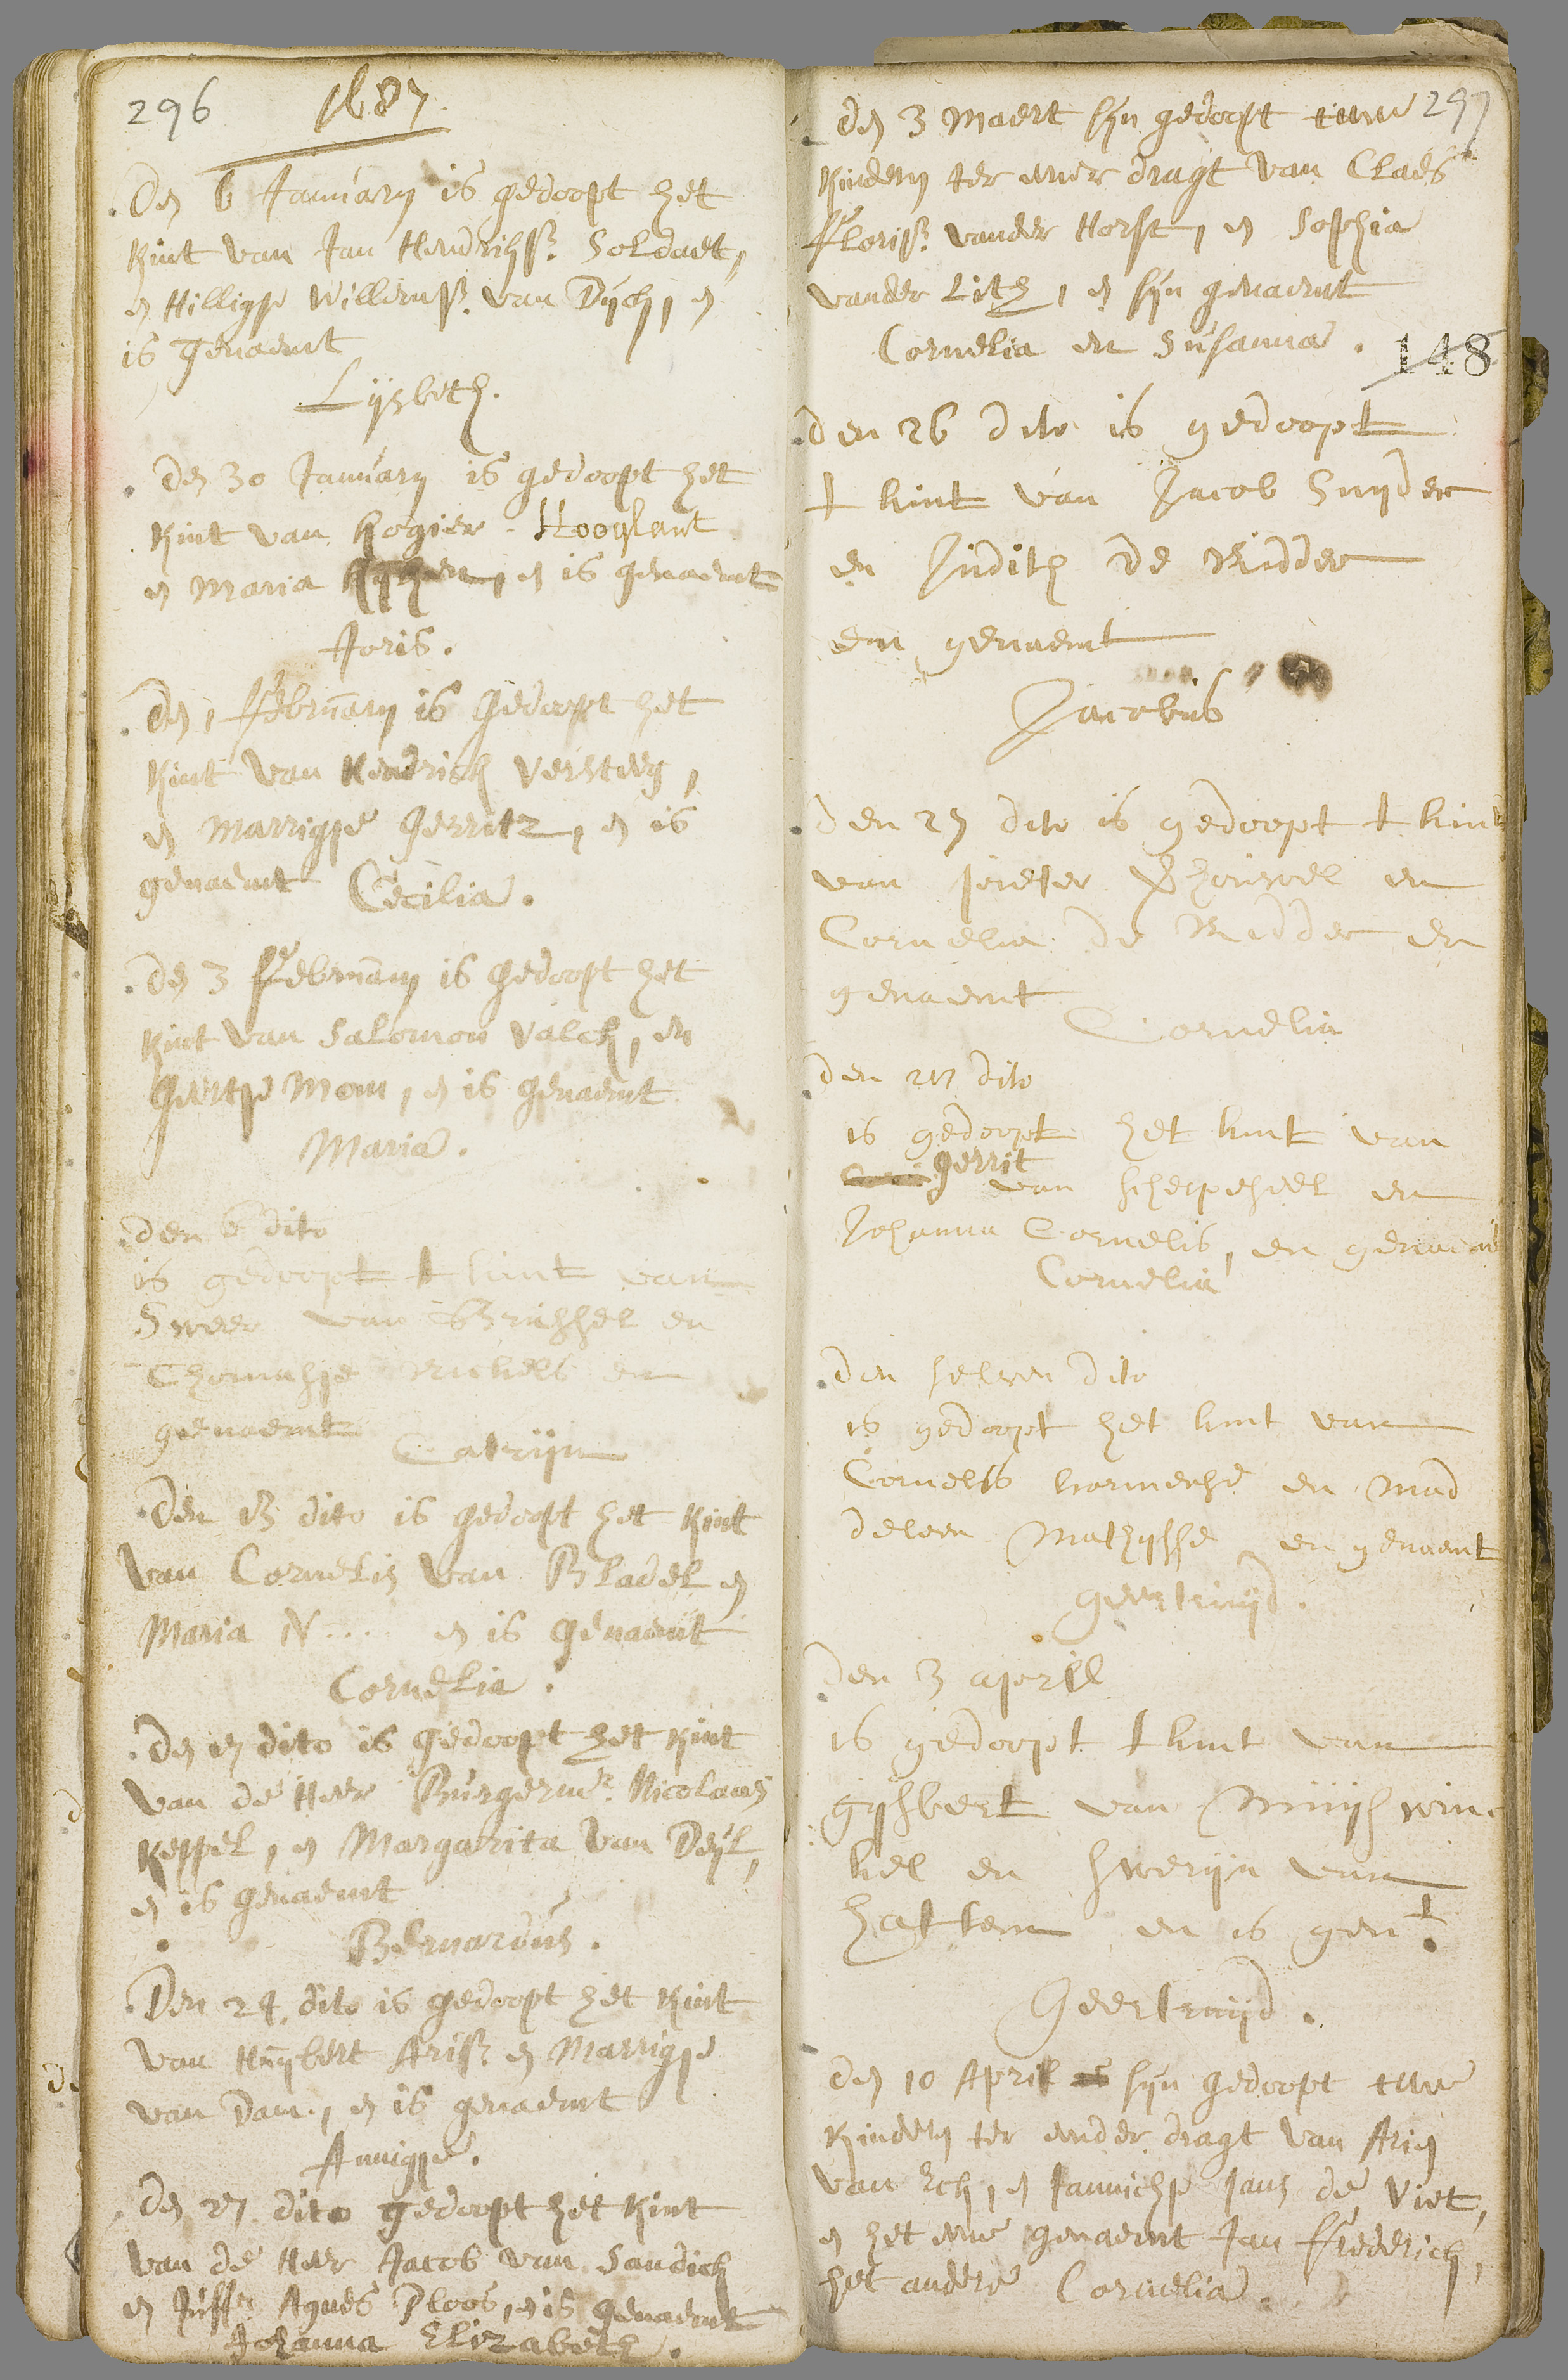 296 1687.
Den 6 January is gedoopt het
Kint van Jan Hendrikss. Soldaet,
en Hilligje Willemss. van Dijck, en
is genaemt
Lijsbeth.
Den 30 January is gedoopt het
Kint van Rogier Hooglant
en Maria en is genaemt
Joris.
Den 1 February is gedoopt het
Kint van Hendrick Versteeg,
en Marrigje Gerritz, en is
genaemt Cecilia.
Den 3 February is gedoopt het
Kint van Salomon Valck, en
Geertje Mom, en is genaemt
Maria.
den 6 dito
is gedoopt t kint van
Sweer van Brussel en
Thomasje Michels en
genaemt Catrijn
Den 13 dito is gedoopt het Kint
van Cornelis van Bladel en
Maria N.... en is genaemt
Cornelia.
Den 17 dito is gedoopt het Kint
van de Heer Burgermr. Nicolaes
Keppel, en Margarita van Deyl,
en is genaemt
Bernardus.
Den 24. dito is gedoopt het Kint
van Huybert Ariss. en Marrigje
van Dam, en is genaemt
Annigje.
Den 27. dito gedoopt het Kint
van de Heer Jacob van Sandick
en Juffr. Agnes Ploos, en is genaemt
Johanna Elizabeth.
297
Den 3 Maert syn gedoopt twee
Kinderen ter eener dragt van Claes
Floriss. vander Horst, en Sophia
vander Lith, en syn genaemt
Cornelia en Susanna.
148
den 26 dito is gedoopt
t kint van Jacob Snyder
en Judith de Ridder
en genaemt
Jacobus
den 27 dito is gedoopt t kint
van pieter en
Cornelia de Ridder en
genaemt
Cornelia
den 27 dito
is gedoopt het kint van
Gerrit
van Scherpeseel en
Johanna Cornelis, en genaemt
Cornelia
den selven dito
is gedoopt het kint van
Cornelis harmense en Mad
deleen Mathysse en genaemt
geertruijd.
den 3 april
is gedoopt t kint van
gysbert van Muijswin
kel en Sweryn van
hattem en is gent.
Geertruijd.
Den 10 April is syn gedoopt twee
Kinderen ter eender dragt van Arien
van Eck, en Jannichje Jans de Viet,
en het eene genaemt Jan Frederick,
het andere Cornelia.